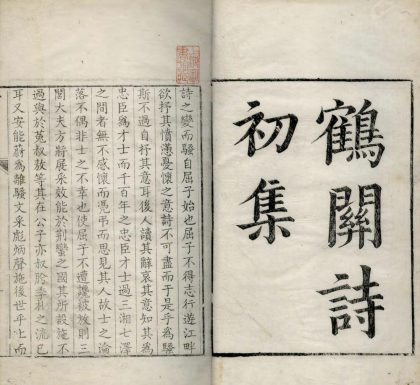 鶴關詩
初集
詩之變而騷自屈子始也屈子不得志行遊江畔
欲抒其憤懣憂懷之意詩不可盡而于是乎為騷
斯不過自抒其意耳後人讀其辭哀其意交知其為
忠臣為才士而千百年之忠臣才士過三湘七澤
之間者無不感懷而憑弔而思見其人故士之淪
落不偶非士之不幸也使屈子不遭讒被放則三
閭大夫方將展采效能於荊蠻之國其所設施不
過與於菟叔敖等其在公子亦叔肹季札之流已
耳又安能蔚為離騷文采彪炳聲施後世乎士而